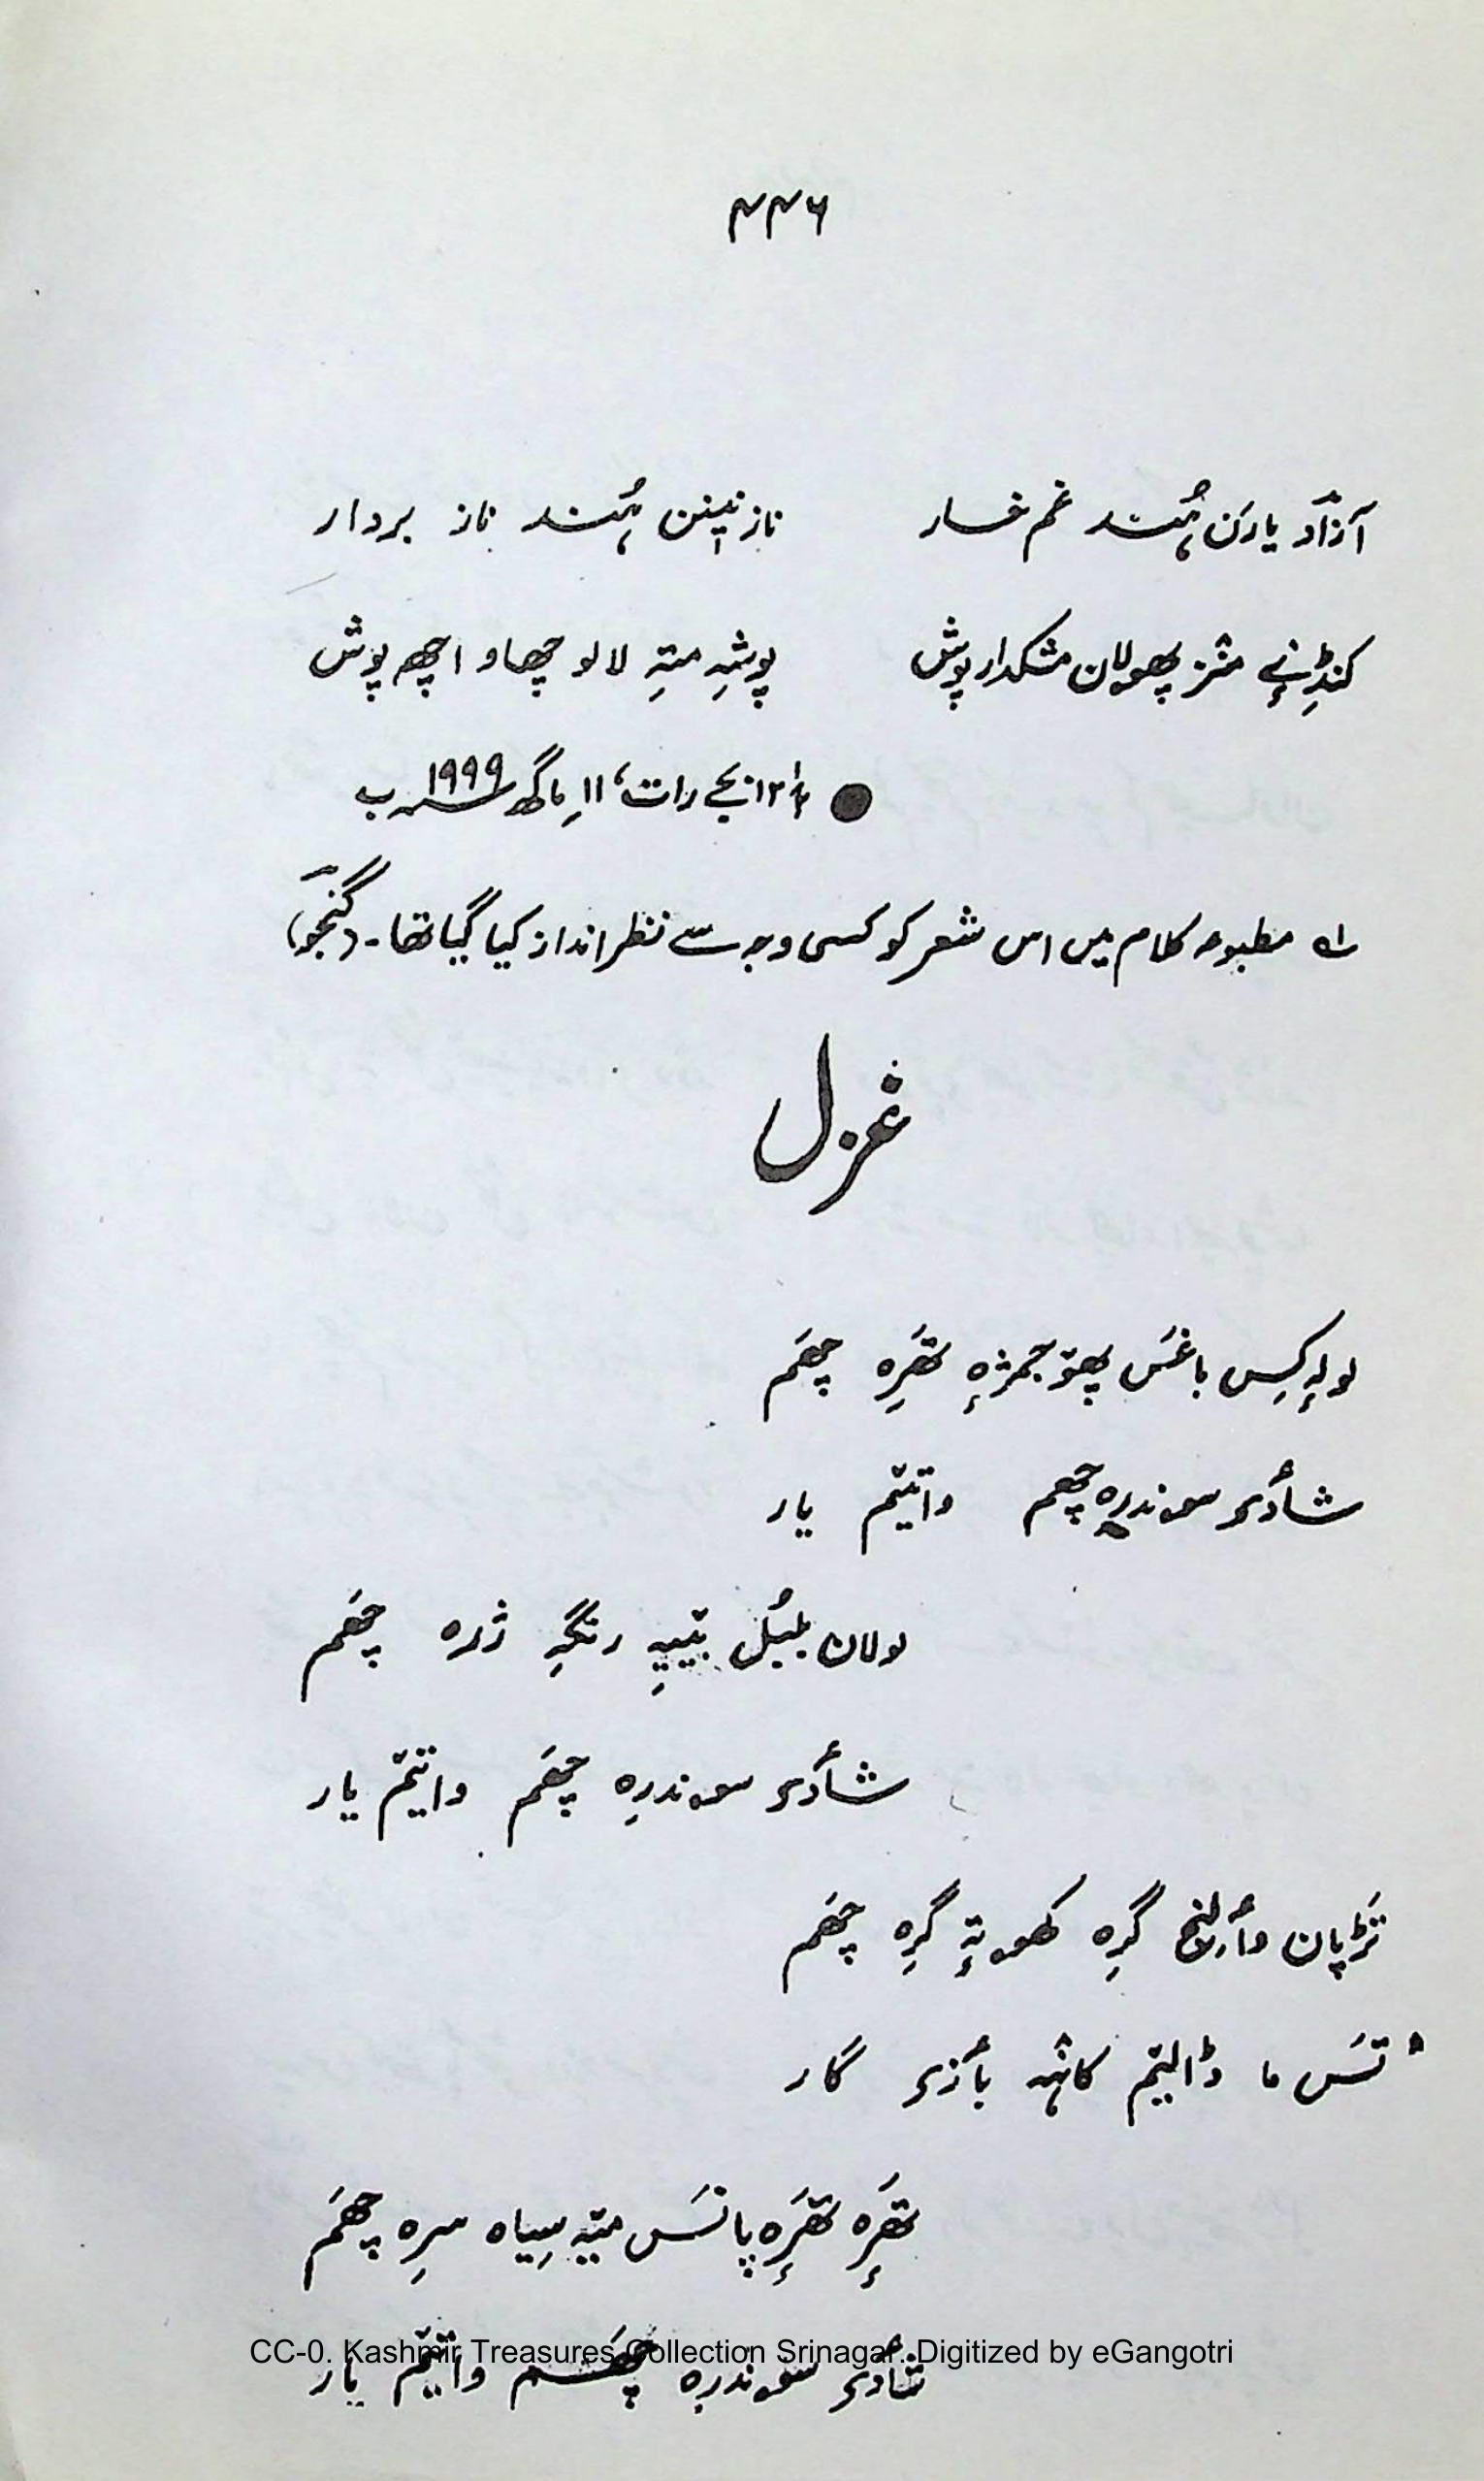 ۴۴۶
آزاد یارَن ہُنٛد غم غسار نازنینن ہُنٛد ناز بردار
کنڈِنےٕ منٛز پھولان مشکدار پوش پوشہِ متہِ لالو چھاو اچھ پوش
● ۱۲½ بجے رات، ۱۱ ِماگھ ۱۹۹۹ ب
لہ مطبوعہ کلام میں اس شعر کو کسی وجہ سے نظر انداز کیا گیا تھا۔ (گنجو)
غزل
لولہٕ کِس باغَس پھۆجمژہٕ تھَرِہ چھَم
شأدی سوندرِہ چھَم واتیٚم یار
لولان بلبُل بیٚیہِ رنگہِ ژرہ چھَم
شأدی سوندرِہ چھَم واتیٚم یار
تڑپان دأرلنج گرِہ کھوتہٕ گرِہ چھَم
تَس ما ڈالیٚم کانٛہہ بأزی گار
تھَرٕہ تھَرٕہ پانَس میٚہ سِیاہ سرِہ چھَم
شأدی سوندرِہ چھَم واتیٚم یار
CC-0. Kashmir Treasures Collection Srinagar. Digitized by eGangotri